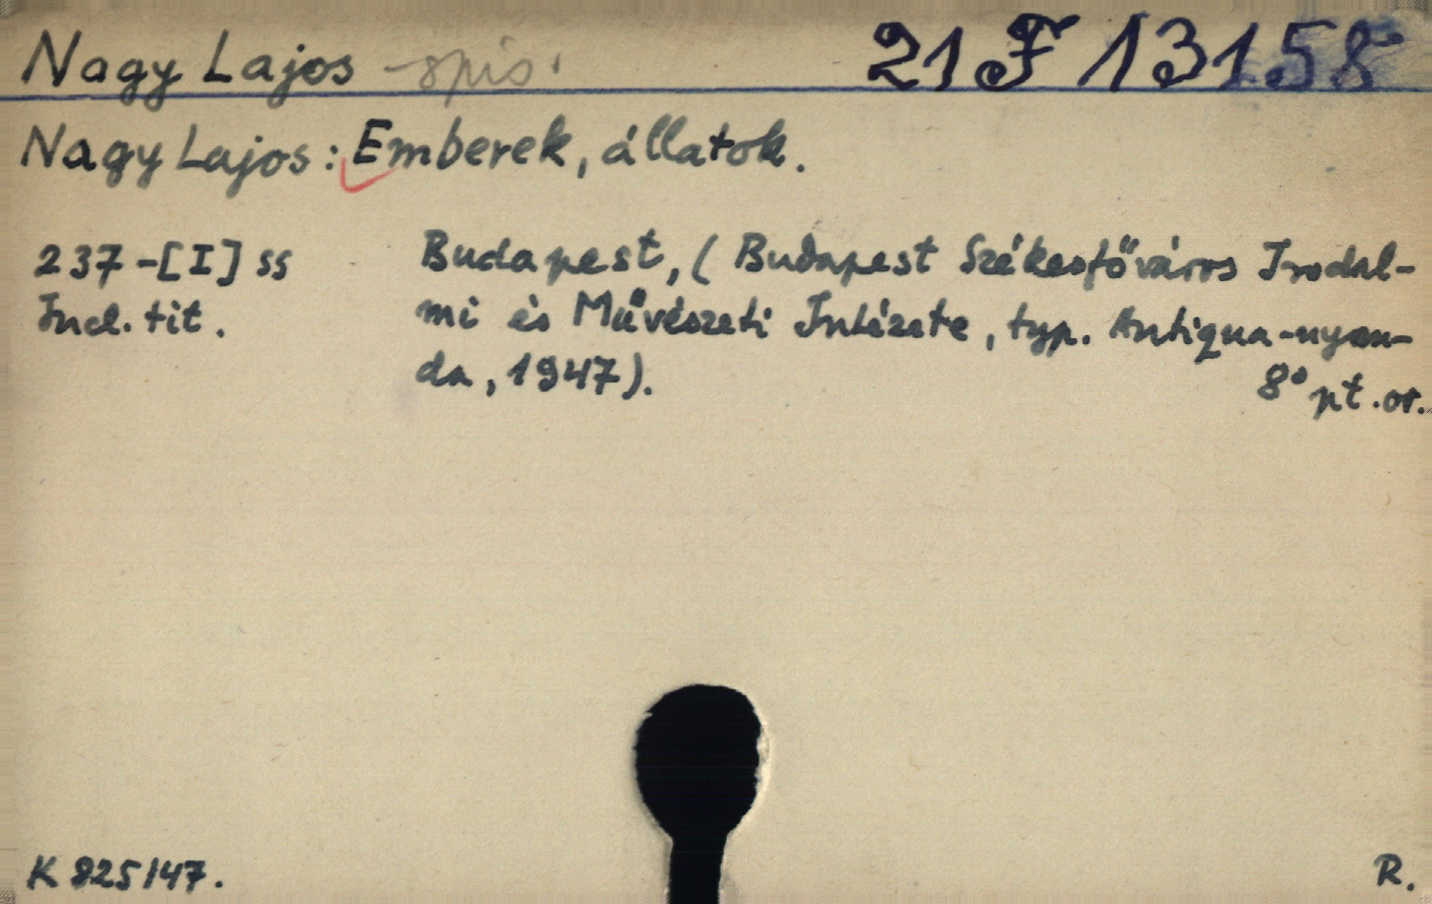 Nagy Lajos spis. 21 F 13158
Nagy Lajos: Emberek, állatok.
237-[I] ss Budapest, (Budapest Székesfőváros Irodal-
Incl. tit. mi és Művészeti Intézete, typ. Antiqua-nyom-
da, 1947).
8° pt. or.
K 825/47. R.